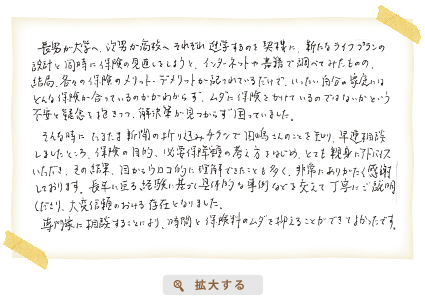 長男が大学へ、次男が高校へそれぞれ進学するのを契機に、新たなライフプランの
設計と同時に保険の見直しをしようと、インターネットや書籍で調べてみたものの、
結局、各々の保険のメリット・デメリットが記されているだけで、いったい自分の家庭には
どんな保険が合っているのかがわからず、ムダに保険をかけているのではないかという
不安と疑念を抱きつつ、解決策が見つからず困っていました。
そんな時にたまたま新聞の折り込みチラシで田嶋さんのことを知り、早速相談
しましたところ、保険の目的、必要保障額の考え方をはじめ、とても親身にアドバイス
いただき、その結果、目からウロコ的に理解できたことも多く、非常にありがたく感謝
しております。長年に亘る経験に基づく具体的な事例なども交えて丁寧にご説明
くださり、大変信頼のおける存在となりました。
専門家に相談することにより、時間と保険料のムダを抑えることができてよかったです。
拡大する